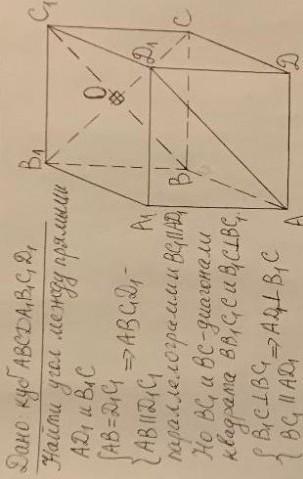 Дано: куб ABCDA₁B₁C₁D₁
Найти угол между прямыми
AD₁ и B₁C
{AB=D₁C₁ ⇒ ABC₁D₁-
{AB∥D₁C₁
параллелограмм и BC₁∥AD₁
Но BC₁ и B₁C-диагонали
квадрата BB₁C₁C и B₁C⊥BC₁.
{B₁C⊥BC₁ ⇒ AD₁⊥B₁C
{BC₁∥AD₁
C₁
B₁
O
D₁
C
A₁
B
D
A